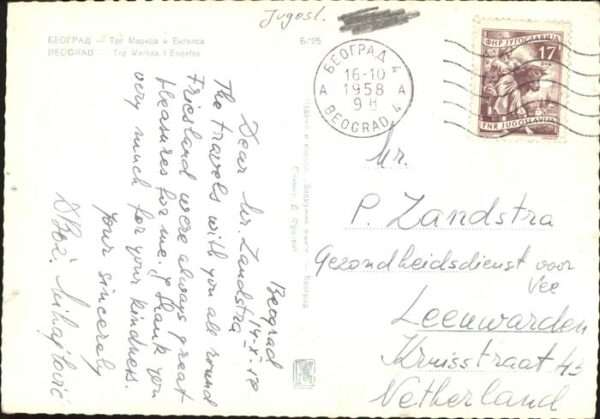 Jugosl.
БЕОГРАД – Трг Маркса и Енгелса
BEOGRAD – Trg Marksa i Engelsa
БЕОГРАД 4
А А
16-10
1958
9 H
BEOGRAD 4
ФНР ЈУГОСЛАВИЈА
17
FNR JUGOSLAVIJA
Beograd
14-X-58
Dear Mr. Zandstra
The travels with you all round
Friesland were always great
pleasures for me. I thank you
very much for your kindness.
Your sincerely
Mihajlović
Mr.
P. Zandstra
Gezondheidsdienst voor
Vee
Leeuwarden
Kruisstraat 43
Netherland